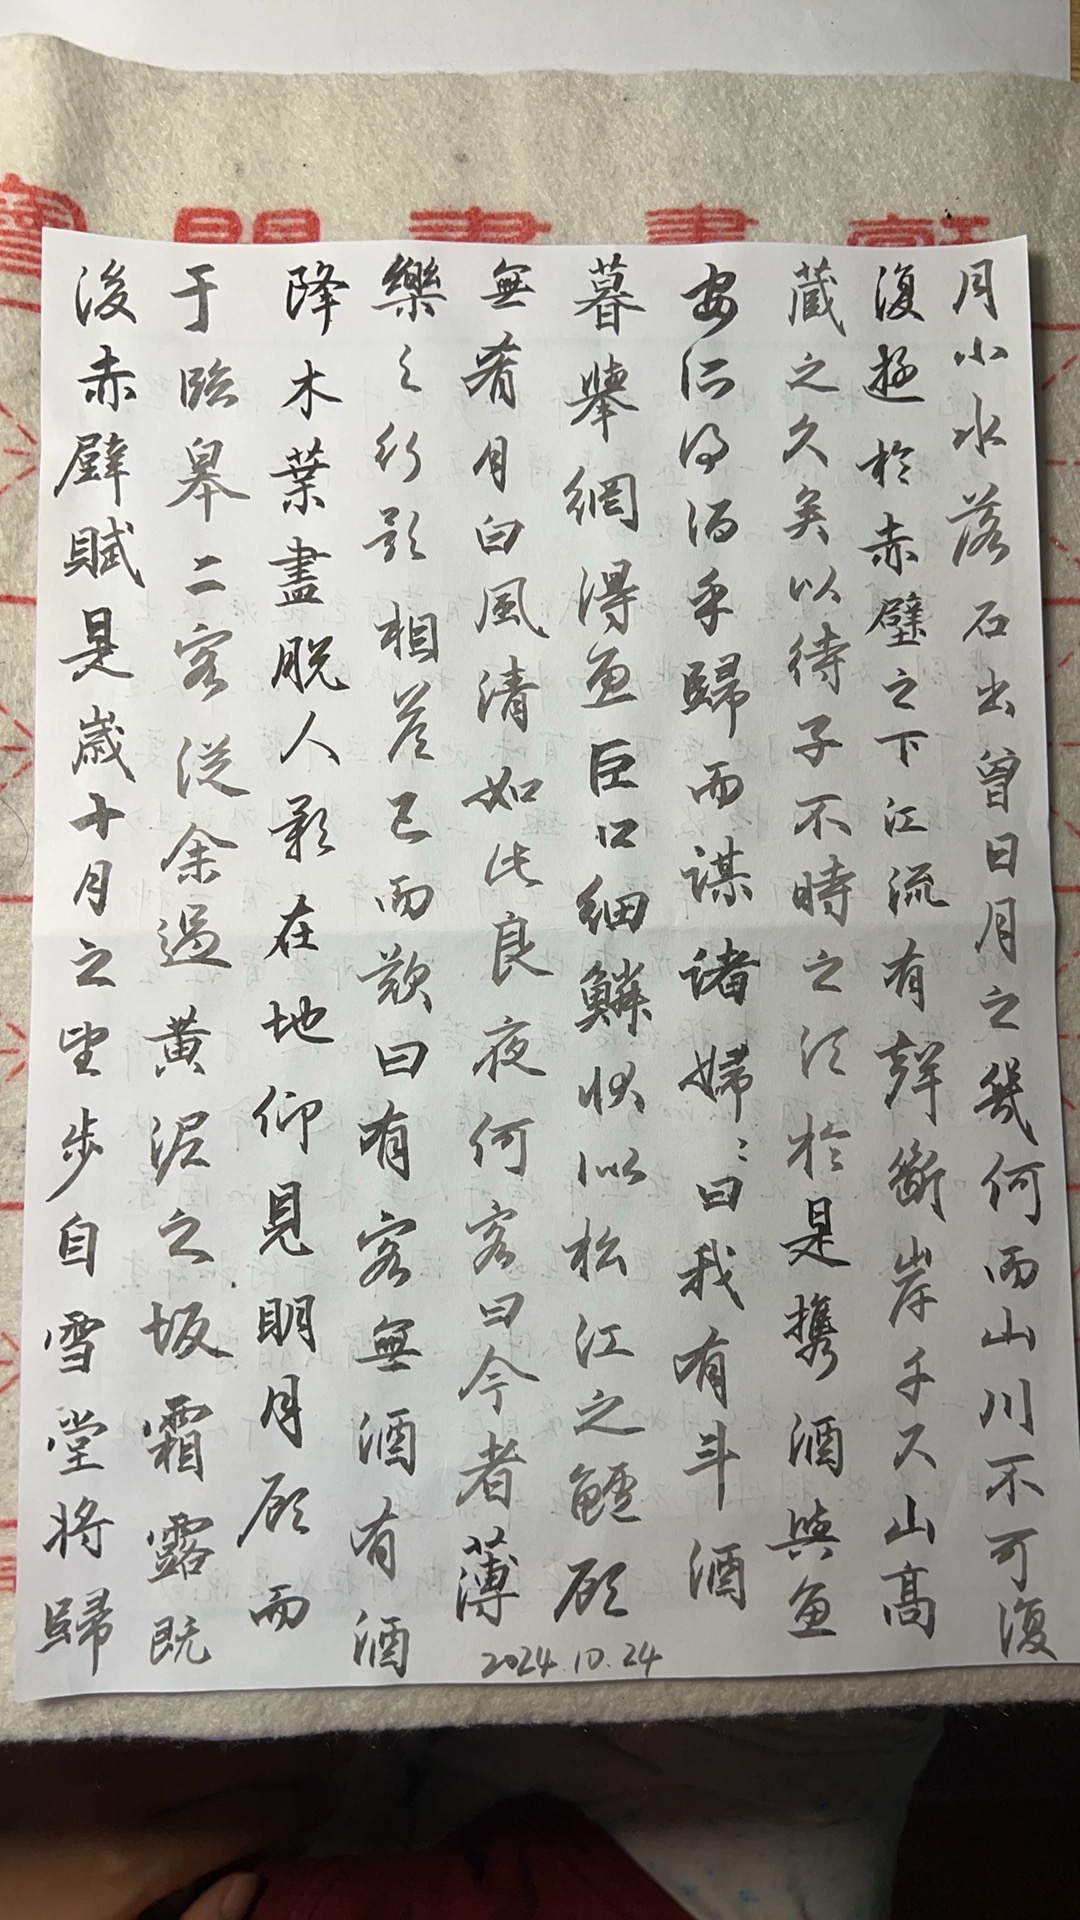 後赤壁賦是歲十月之望步自雪堂將歸
于臨皋二客從余過黃泥之坂霜露既
降木葉盡脫人影在地仰見明月顧而
樂之行歌相答已而歎曰有客無酒有酒
無肴月白風清如此良夜何客曰今者薄
暮舉網得魚巨口細鱗狀似松江之鱸顧
安所得酒乎歸而謀諸婦〻曰我有斗酒
藏之久矣以待子不時之須於是攜酒與魚
復遊於赤壁之下江流有聲斷岸千尺山高
月小水落石出曾日月之幾何而山川不可復
2024.10.24